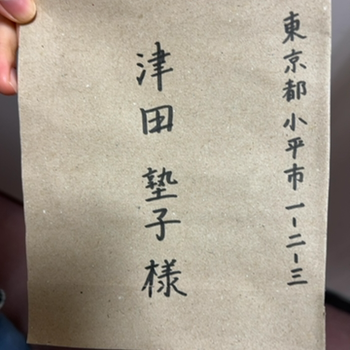 東京都小平市一-二-三
津田塾子様